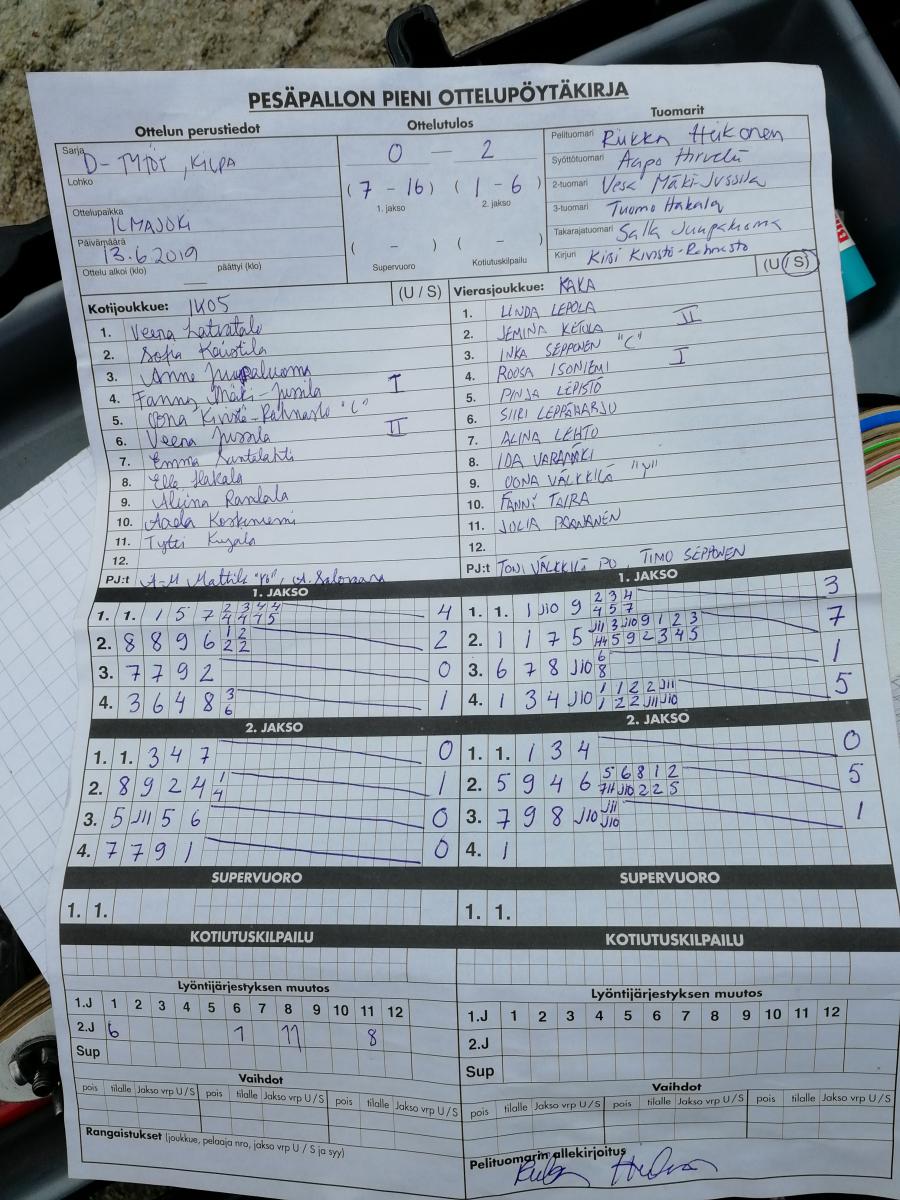 PESÄPALLON PIENI OTTELUPÖYTÄKIRJA
Ottelun perustiedot
Sarja D-TYTÖT, KILPA
Lohko
Ottelupaikka ILMAJOKI
Päivämäärä 13.6.2019
Ottelu alkoi (klo) päättyi (klo)
Ottelutulos
0 — 2
(7 - 16) (1 - 6)
1. jakso 2. jakso
( - ) ( - )
Supervuoro Kotiutuskilpailu
Tuomarit
Pelituomari Riikka Heikonen
Syöttötuomari Aapo Hirvelä
2-tuomari Vesa Mäki-Jussila
3-tuomari Tuomo Hakala
Takarajatuomari Salla Juupaluoma
Kirjuri Kisi Kivistö-Rahnasto
Kotijoukkue: (U / S)
1. Veera Latvatalo
2. Sofia Kaistila
3. Anne Juupaluoma
4. Fanny Mäki-Jussila I
5. Oona Kivistö-Rahnasto "C"
6. Veena Jussila II
7. Emma Rantalahti
8. Ella Hakala
9. Aliina Rantala
10. Aada Koskiniemi
11. Tytti Kujala
12.
PJ:t A-M Mattila "PO", A. Salonen
Vierasjoukkue: KAKA (U / S)
1. LINDA LEPOLA
2. JEMINA KETOLA II
3. INKA SEPPONEN "C"
4. ROOSA ISONIEMI I
5. PINJA LEPISTÖ
6. SIIRI LEPPÄHARJU
7. ALINA LEHTO
8. IDA VARAMÄKI
9. OONA VÄLKKILÄ "V"
10. FANNI TAIRA
11. JULIA PAANANEN
12.
PJ:t TONI VÄLKKILÄ PO, TIMO SEPPONEN
1. JAKSO
1. 1. 1 5 7 2 3 4 4 4
4 4 4 5
2. 8 8 9 6 1 2 2
2 2
3. 7 7 9 2 0
4. 3 6 4 8 3 1
6
2. JAKSO
1. 1. 3 4 7 0
2. 8 9 2 4 1 1
4
3. 5 J11 5 6 0
4. 7 7 9 1 0
SUPERVUORO
1. 1.
KOTIUTUSKILPAILU
1. JAKSO
1. 1. 1 J10 9 2 3 4 3
4 5 7
2. 1 1 7 5 J11 3 J10 9 1 2 3 7
J11 5 9 2 3 4 5
3. 6 7 8 J10 6 1
8
4. 1 3 4 J10 1 1 2 2 J11 5
1 2 2 J11 J10
2. JAKSO
1. 1. 1 3 4 0
2. 5 9 4 6 5 6 8 1 2 5
J11 J10 2 2 5
3. 7 9 8 J10 J11 1
J10
4. 1
SUPERVUORO
1. 1.
KOTIUTUSKILPAILU
Lyöntijärjestyksen muutos
1.J 1 2 3 4 5 6 7 8 9 10 11 12
2.J 6 1 11 8
Sup
Vaihdot
pois tilalle Jakso vrp U / S pois tilalle Jakso vrp U / S pois tilalle Jakso vrp U / S
Rangaistukset (joukkue, pelaaja nro, jakso vrp U / S ja syy)
Lyöntijärjestyksen muutos
1.J 1 2 3 4 5 6 7 8 9 10 11 12
2.J
Sup
Vaihdot
pois tilalle Jakso vrp U / S pois tilalle Jakso vrp U / S pois tilalle Jakso vrp U / S
Pelituomarin allekirjoitus